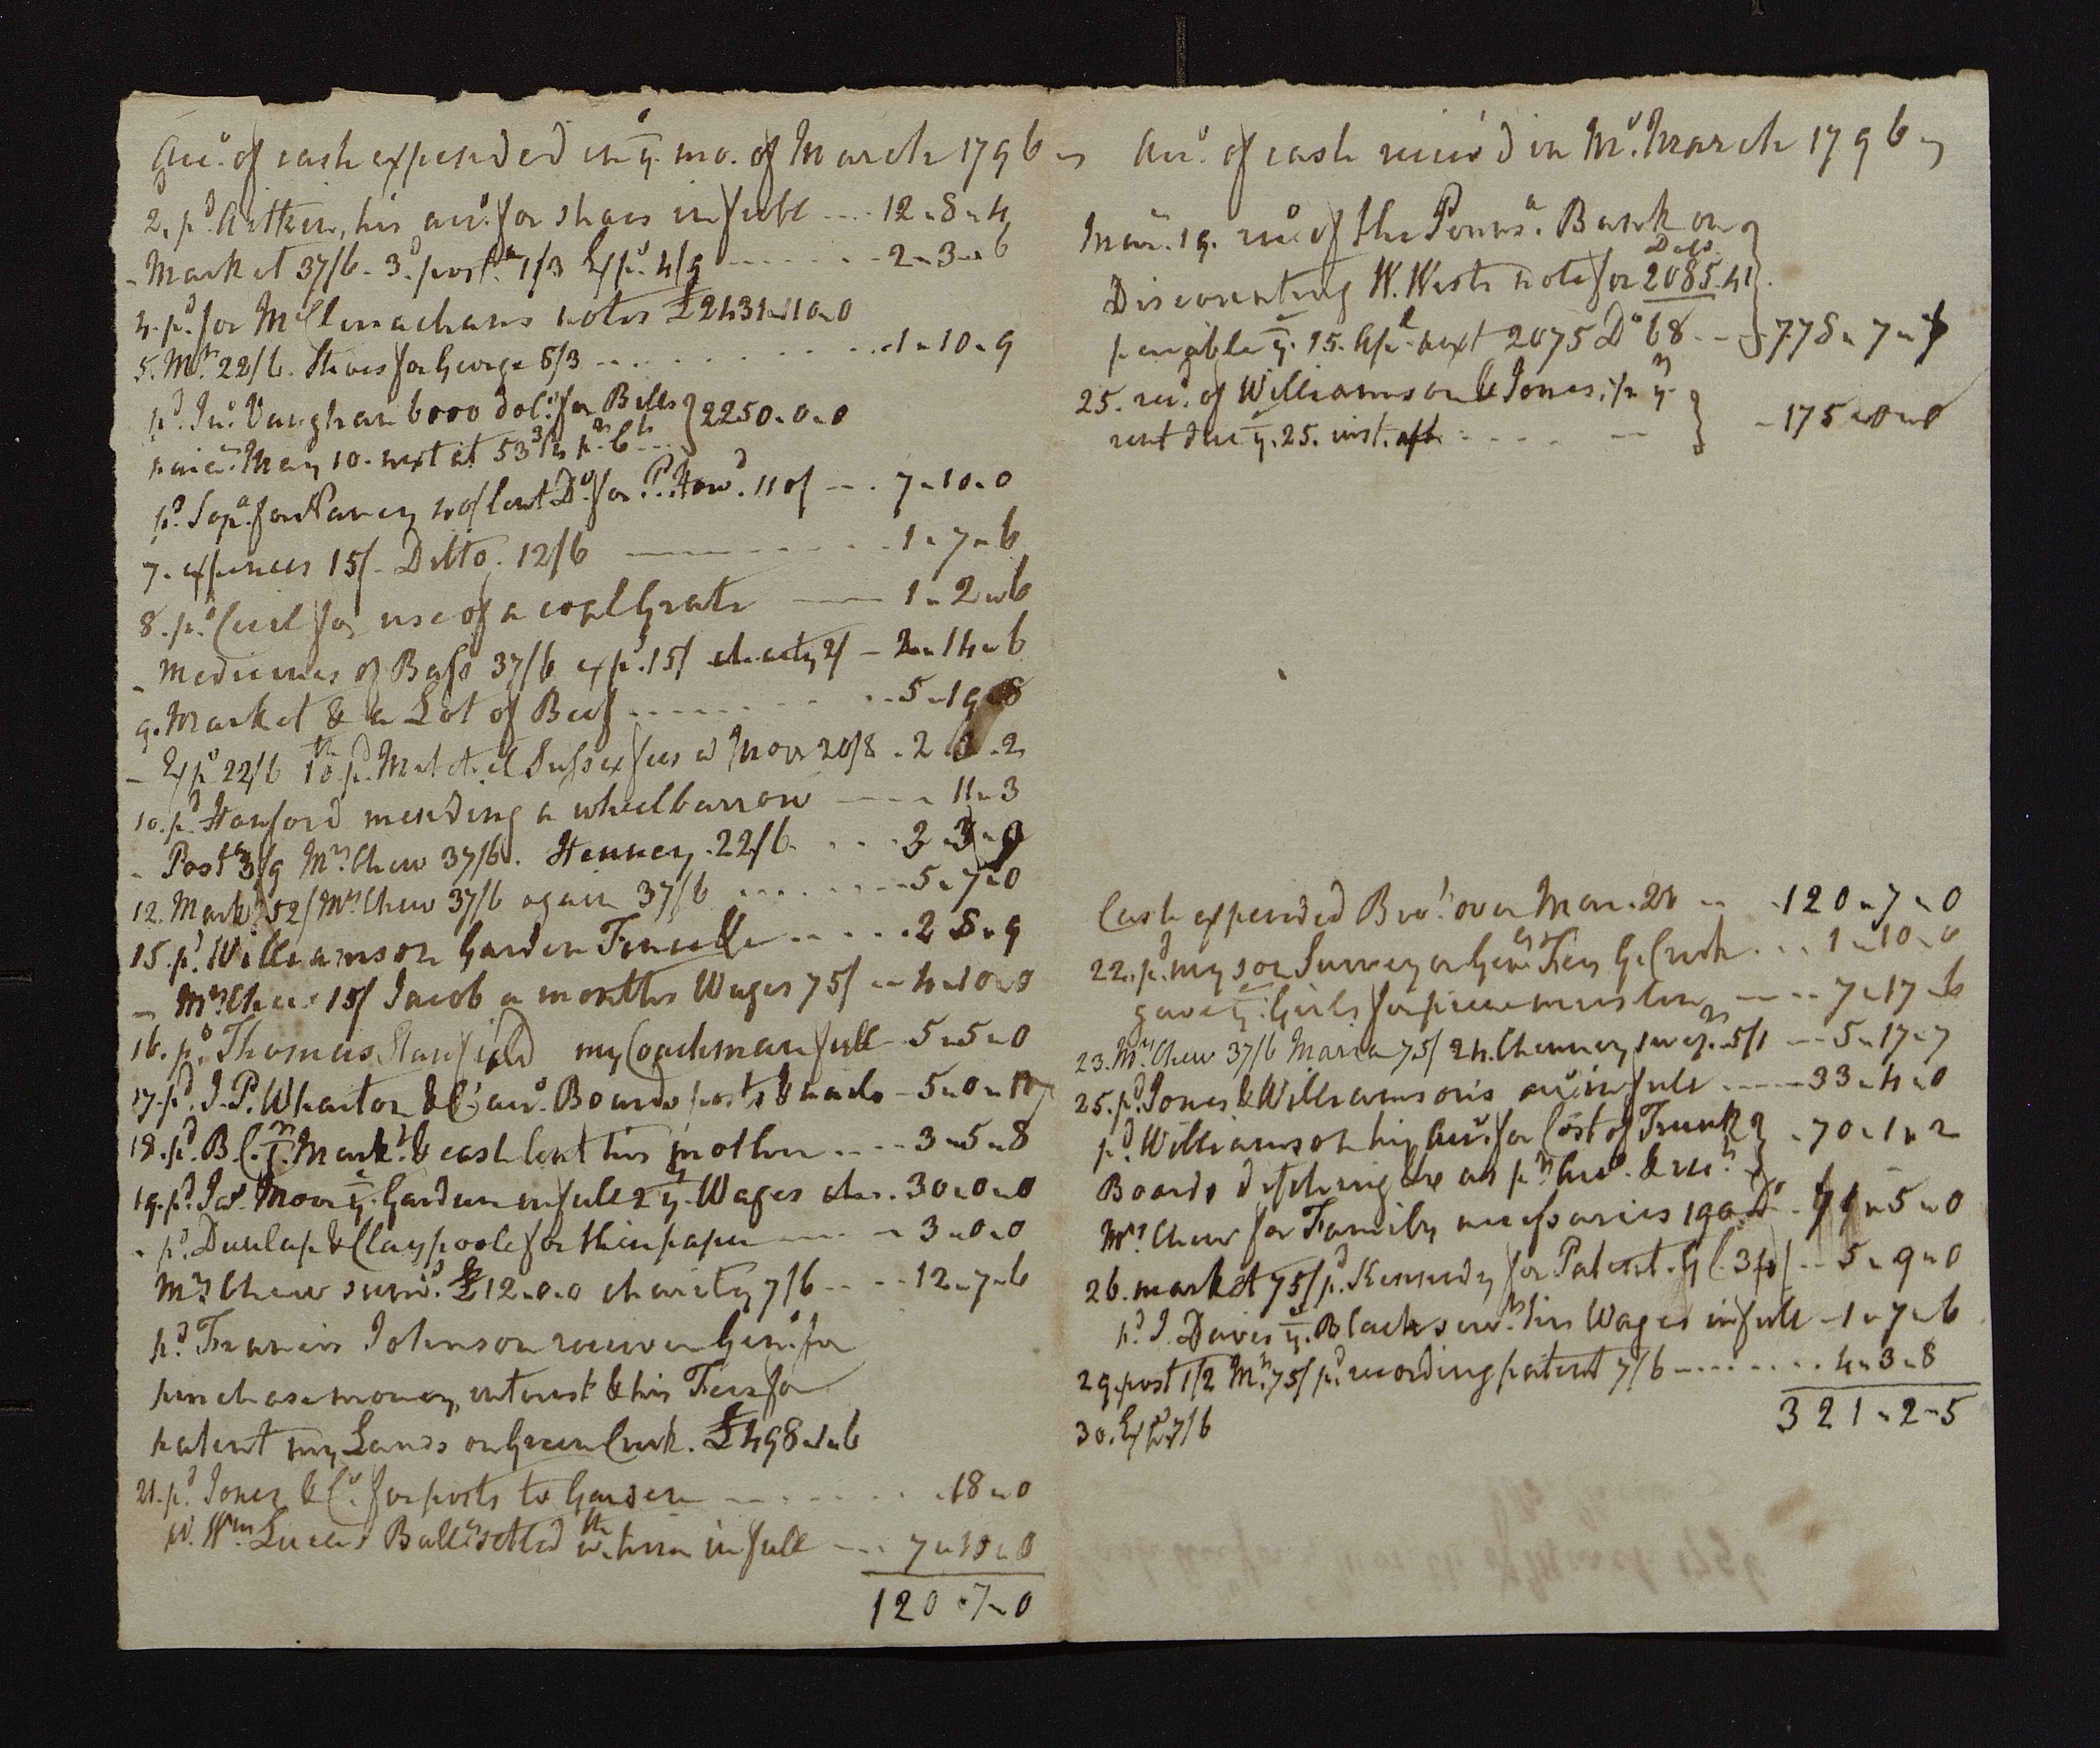 Acco. of cash expended in ye. mo. of March 1796
2. pd. Aitkin, his acco. for shoes in full .... 12-8-4
- Market 37/6. 3d. post. 1/3 Exps. 4/9 ....... 2-3-6
4. pd. for McClenachans notes £2431-10-0
5. Mt. 22/6. Shoes for George 8/3 ......... 1-10-9
pd. Jno. Vaughan 6000 dols. for Bills } 2250-0-0
May 10. next at 53
7-10-0
7. expences 15/- Ditto. 12/6 ........ 1-7-6
8. pd. Cecil for use of a coal Grate —— 1-2-6
- Medicines of Bass 37/6 exps. 15/ charity 2/ - 2-14-6
9. Market & a Lot of Beef ......... 5-19-8
- Exps. 22/6 10th. pd. 20/8 . 2-3-2
10. pd. Hanford mending a wheelbarrow ---- 11-3
- Post. 3/9 Mrs. Chew 37/6. Henney. 22/6 .... 3-3-9
12. Markt. 52/ Mrs. Chew 37/6 again 37/6 ....... 5-7-0
15. pd. Williamson Garden ..... 2 8-9
- Mrs. Chew 15/ Jacob a months Wages 75/ -- 4-10-0
16. pd. Thomas Stanfield my Coachman full - 5-5-0
17. pd. J. P. Wharton & Co. acco. Boards posts & nails - 5-0-
18. pd. B. C. Jr. Markt. & cash lent his mother .... 3-5-8
19. pd. Jas. Moor ye. Gardiner in full 2 ye. Wages . 30-0-0
- pd. Dunlap & Claypoole for thin paper ---- 3-0-0
Mrs. Chew £12.0.0 charity 7/6 .... 12-7-6
pd. Francis Johnson receiver Genl. for
purchase money, interest & his Fees for
patent my Lands on Green Creek. £498-1-6
21. pd. Jones & Co. for posts to Garden ........ 18-0
Wm. Lucas Ballce. settled wth. him in full --- 7-10-0
120-7-0
Acco. of cash receiv'd in Mo. March 1796
Mar. 19. recd. of the Penna. Bank on }
Dols.
Discounting W. Wests note for 2085.41
payable ye. 15. Apl. next 2075 Do. 68 -- } 778-7-7
25. recd. of Williamson & Jones, pr ye. }
rent due ye. 25. inst. .... -- } - 175-0-0
Cash expended Brot. over Mar. 21 -- - 120-7-0
22. pd. my son Surveyor Genls. Fees G. Creek ... 1-10-0
gave ye. Girls for piece muslin ---- 7-17-6
23. Mrs. Chew 37/6 Maria 75/ 24. 5/1 --- 5-17-7
25. pd. Jones & Williamsons acco. in full ---- 33-4-0
pd. Williamson his acco. for Cost of Trunk } - 70-1-2
Boards ditching &c as pr. acco. & rect. }
Mrs. Chew for Family necessaries 190 Do. - 71-5-0
26. market 75/ pd. Kennedy for Patent. G C. 34/ -- 5-9-0
pd. J. Davis ye. Black servt. his Wages in full - 1-7-6
29. post 1/2 Mt. 75/ pd. recording patent 7/6 ........ 4-3-8
321-2-5
30. Exps. 7/6